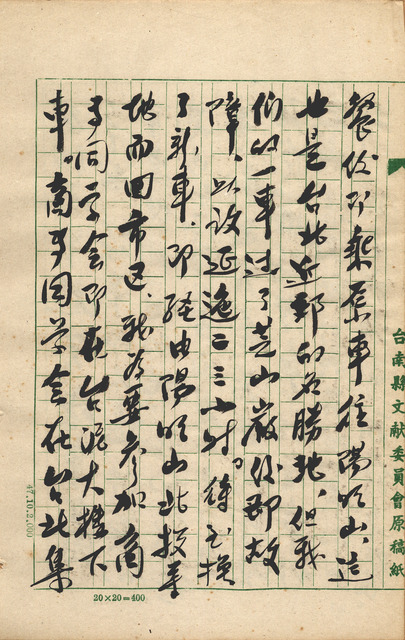 餐後即乘原車往陽明山,這
也是台北近郊的名勝地,但我
們的一車过了芝山巖後即故
障,以致延遲二三小时。待至換
了新車,即経由陽明山北投等
地而回市區,我为要參加商
专同学会即在台湾大樓下
車。商专同学会在台北集
台南縣文献委員會原稿紙
47.10.2,000
20×20=400